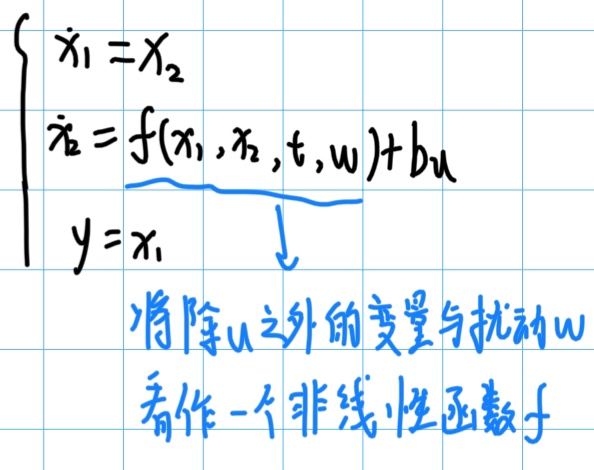 ẋ₁ = x₂
ẋ₂ = f(x₁, x₂, t, w) + bu
y = x₁
将除u之外的变量与扰动w
看作一个非线性函数f